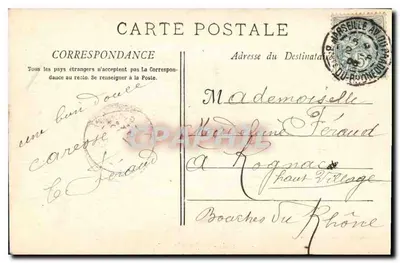 CARTE POSTALE
CORRESPONDANCE
Tous les pays étrangers n'acceptent pas la Correspon-
dance au recto. Se renseigner à la Poste.
Adresse du Destinata
MARSEILLE
DU-RHONE
une bien douce
caresse
C. Féraud
CPAPHIL
Mademoiselle
Féraud
à Rognac
haut Village
Bouches du Rhône